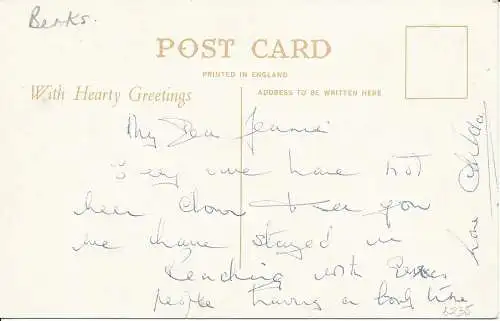 Berks.
POST CARD
PRINTED IN ENGLAND
With Hearty Greetings
ADDRESS TO BE WRITTEN HERE
My Dear Jeannie
Sorry we have not
been down to see you
we have stayed in
Reading with
people having a lovely time
Love
5235